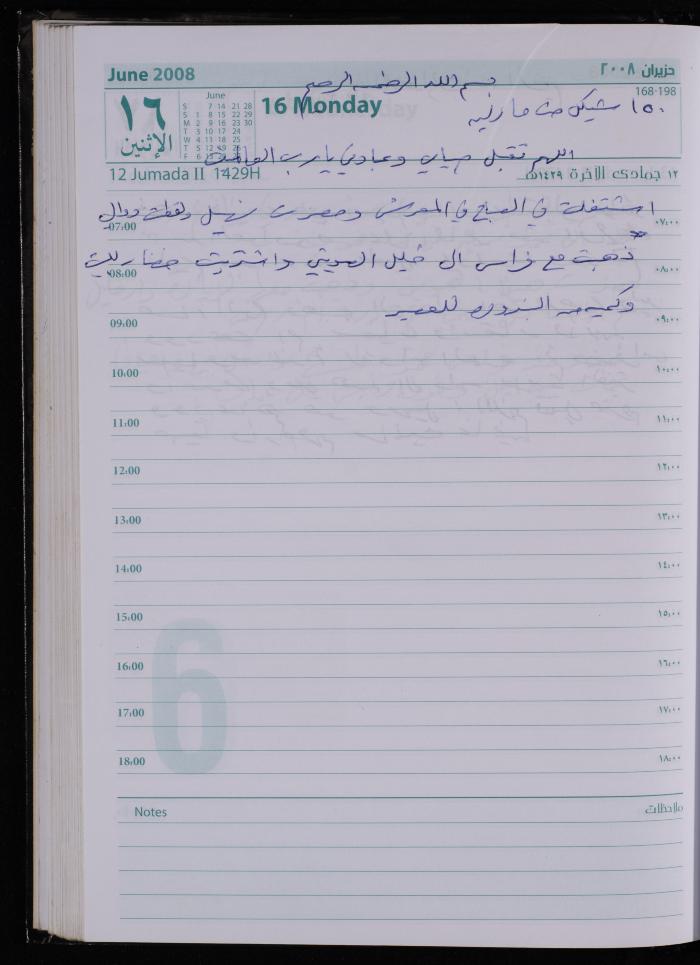 June 2008
حزيران ٢٠٠٨
بسم الله الرحمن الرحيم
168-198
١٦
الإثنين
June
S 7 14 21 28
S 1 8 15 22 29
M 2 9 16 23 30
T 3 10 17 24
W 4 11 18 25
T 5 12 19 26
F 6 13
16 Monday
١٥٠ شيكل من مارليه
اللهم تقبل صيامي وعبادتي يا رب العالمين
12 Jumada II 1429H
١٢ جمادى الآخرة ١٤٢٩هـ
اشتغلت في الصباح في المعرش وحضرت نبيل ولقطت دوالي
07:00 ٠٧:٠٠
ذهبت مع فراس ال خليل العويني واشتريت خضار للبيت
08:00 ٠٨:٠٠
وكمية البندورة للعصير
09:00 ٠٩:٠٠
10:00 ١٠:٠٠
11:00 ١١:٠٠
12:00 ١٢:٠٠
13:00 ١٣:٠٠
14:00 ١٤:٠٠
15:00 ١٥:٠٠
6
16:00 ١٦:٠٠
17:00 ١٧:٠٠
18:00 ١٨:٠٠
Notes
ملاحظات